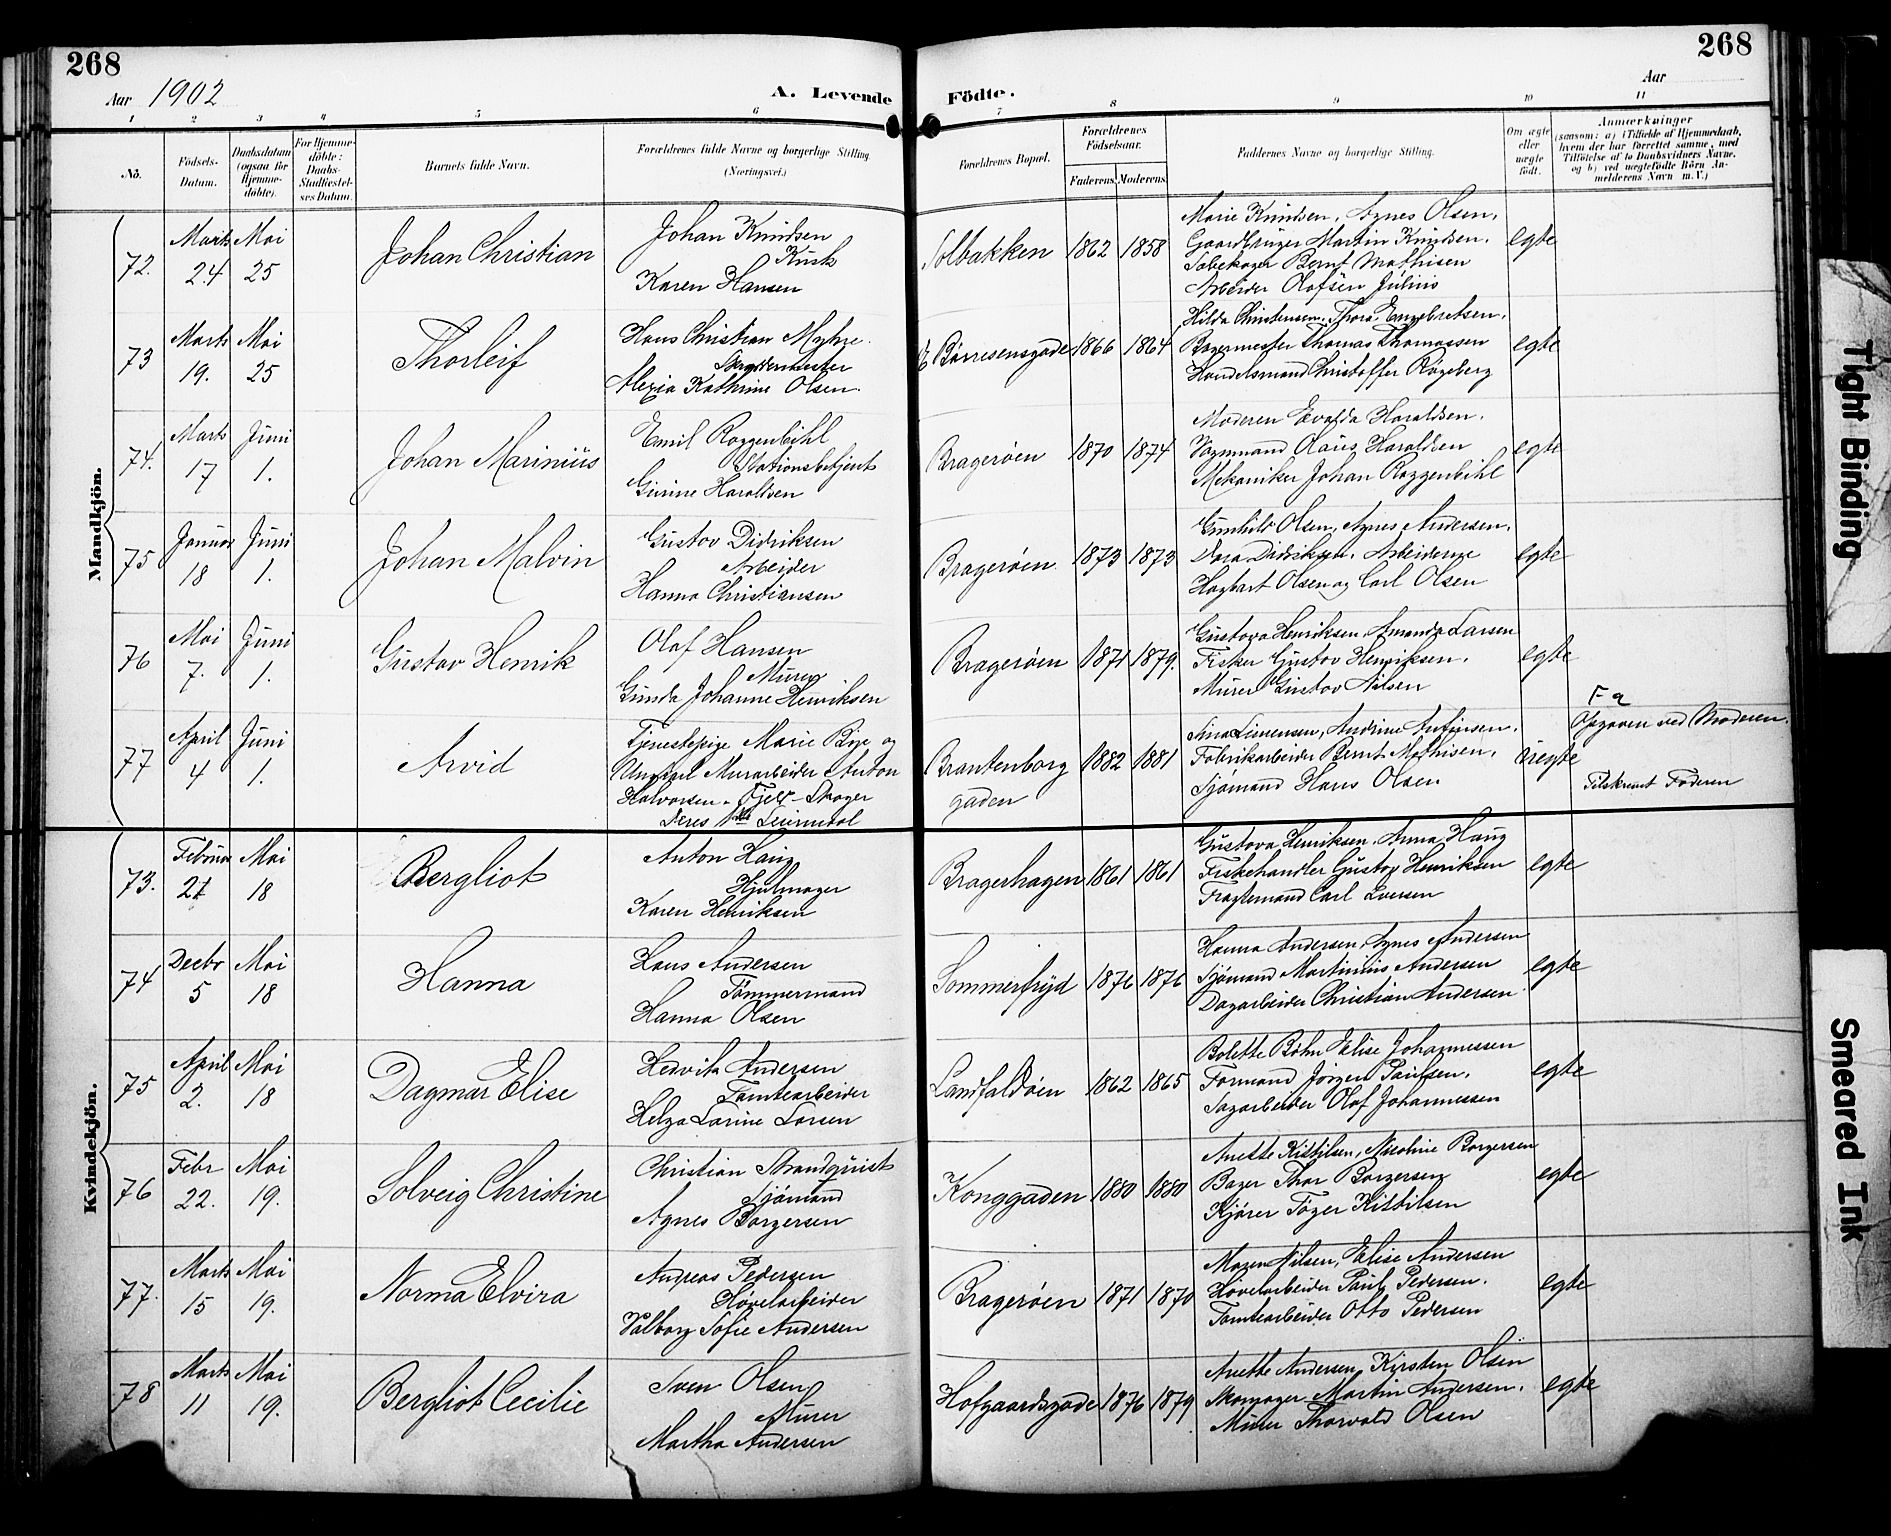 268
268
Aar 1902
A. Levende Födte.
Aar
1 2 3 4 5 6 7 8 9 10 11
No.
Födsels-Datum.
Daabsdatum (ogsaa for Hjemme-döbte).
For Hjemme-döbte: Daabs-Stadfæstel-ses Datum.
Barnets fulde Navn.
Forældrenes fulde Navne og borgerlige Stilling (Næringsvei.)
Forældrenes Bopæl.
Forældrenes Födselsaar.
Faderens
Moderens
Faddernes Navne og borgerlige Stilling.
Om ægte eller uægte födt.
Anmærkninger
(saasom: a) i Tilfælde af Hjemmedaab, hvem der har forrettet samme, med Tilföielse af to Daabsvidners Navne, og b) ved uægtefödte Börn Anmelderens Navn m. V.)
Mandkjön.
72. Marts 24 Mai 25 Johan Christian
Johan Knudsen
Kusk
Karen Hansen
Solbakken 1862 1858
Marie Knudsen, Agnes Olsen,
Gaardbruger Martin Knudsen,
Bernt Mathisen
Arbeider Olafsen Julius
egte
73 Marts 19. Mai 25 Thorleif
Hans Christian Myhre
Alexia Kathrine Olsen.
Børresensgade 1866 1864
Hilda Christensen, Thora Engebretsen,
Bagermester Thomas Thomassen
Handelsmand Christoffer Røgeberg
egte
74. Marts 17 Juni 1. Johan Marinius
Emil Roggenbihl
Stationsbetjent
Gurine Haraldsen
Bragerøen 1870 1874
Moderen Evalda Haraldsen,
Vognmand Olaus Haraldsen
Mekaniker Johan Roggenbihl
egte
75 Januar 18 Juni 1. Johan Malvin
Gustav Didriksen
Arbeider
Hanna Christiansen
Bragerøen 1873 1873
Gunhild Olsen, Agnes Andersen,
Dora Didriksen, Arbeiderne
Hagbart Olsen og Carl Olsen
egte
76 Mai 7. Juni 1. Gustav Henrik
Olaf Hansen
Murer
Gunda Johanne Henriksen
Bragerøen 1871 1879.
Gustava Henriksen, Amanda Larsen
Fisker Gustav Henriksen,
Murer Gustav Nilsen
egte
77 April 4 Juni 1. Arvid
Tjenestepige Marie Bøe og
Ungkarl Murarbeider Anton
Halvorsen - Fjeld - Skoger
Deres 1ste
Brantenborg
gaden 1882 1881
Simensen, Andrine Antonsen,
Fabrikarbeider Bernt Mathisen,
Sjømand Hans Olsen
uegte
Opgaven ved Moderen.
Tilskrevet Faderen
Kvindekjön.
73. Februar 21 Mai 18 Bergliot
Anton Haug
Hjulmager
Karen Henriksen
Bragerhagen 1861 1861
Gustava Henriksen, Anna Haug
Fiskehandler Gustav Henriksen
Fragtemand Carl Iversen
egte
74 Decbr 5 Mai 18 Hanna
Hans Andersen
Tømmermand
Hanna Olsen
Sommerfryd 1876 1876
Hanna Andersen, Agnes Andersen
Sjømand Martinius Andersen
Dagarbeider Christian Andersen
egte
75 April 2. Mai 18 Dagmar Elise
Hedvik Andersen
Tomtearbeider
Helga Larine Larsen
Landfaldøen 1862 1865
Bolette Bøhn Elise Johannessen
Formand Jørgen Paulsen,
Sagarbeider Olof Johannessen
egte
76 Febr 22. Mai 19. Solveig Christine
Christian Strandquist
Sjømand
Agnes Borgersen
Konggaden 1880 1880
Anette Kittilsen, Nicoline Borgersen
Bager Thor Borgersen
Kjører Kittilsen
egte
77. Marts 15 Mai 19. Norma Elvira
Andreas Pedersen
Høvelarbeider
Valborg Sofie Andersen
Bragerøen 1871 1870
Maren Nilsen, Elise Andersen
Høvelarbeider Paul Pedersen,
Tomtearbeider Otto Pedersen
egte
78 Marts 11 Mai 19. Bergliot Cecilie
Sven Olsen
Murer
Martha Andersen
Hofgaardsgade 1876 1879
Anette Andersen, Kirsten Olsen
Skomager Martin Andersen,
Murer Thorvald Olsen
egte
Tight Binding
Smeared Ink